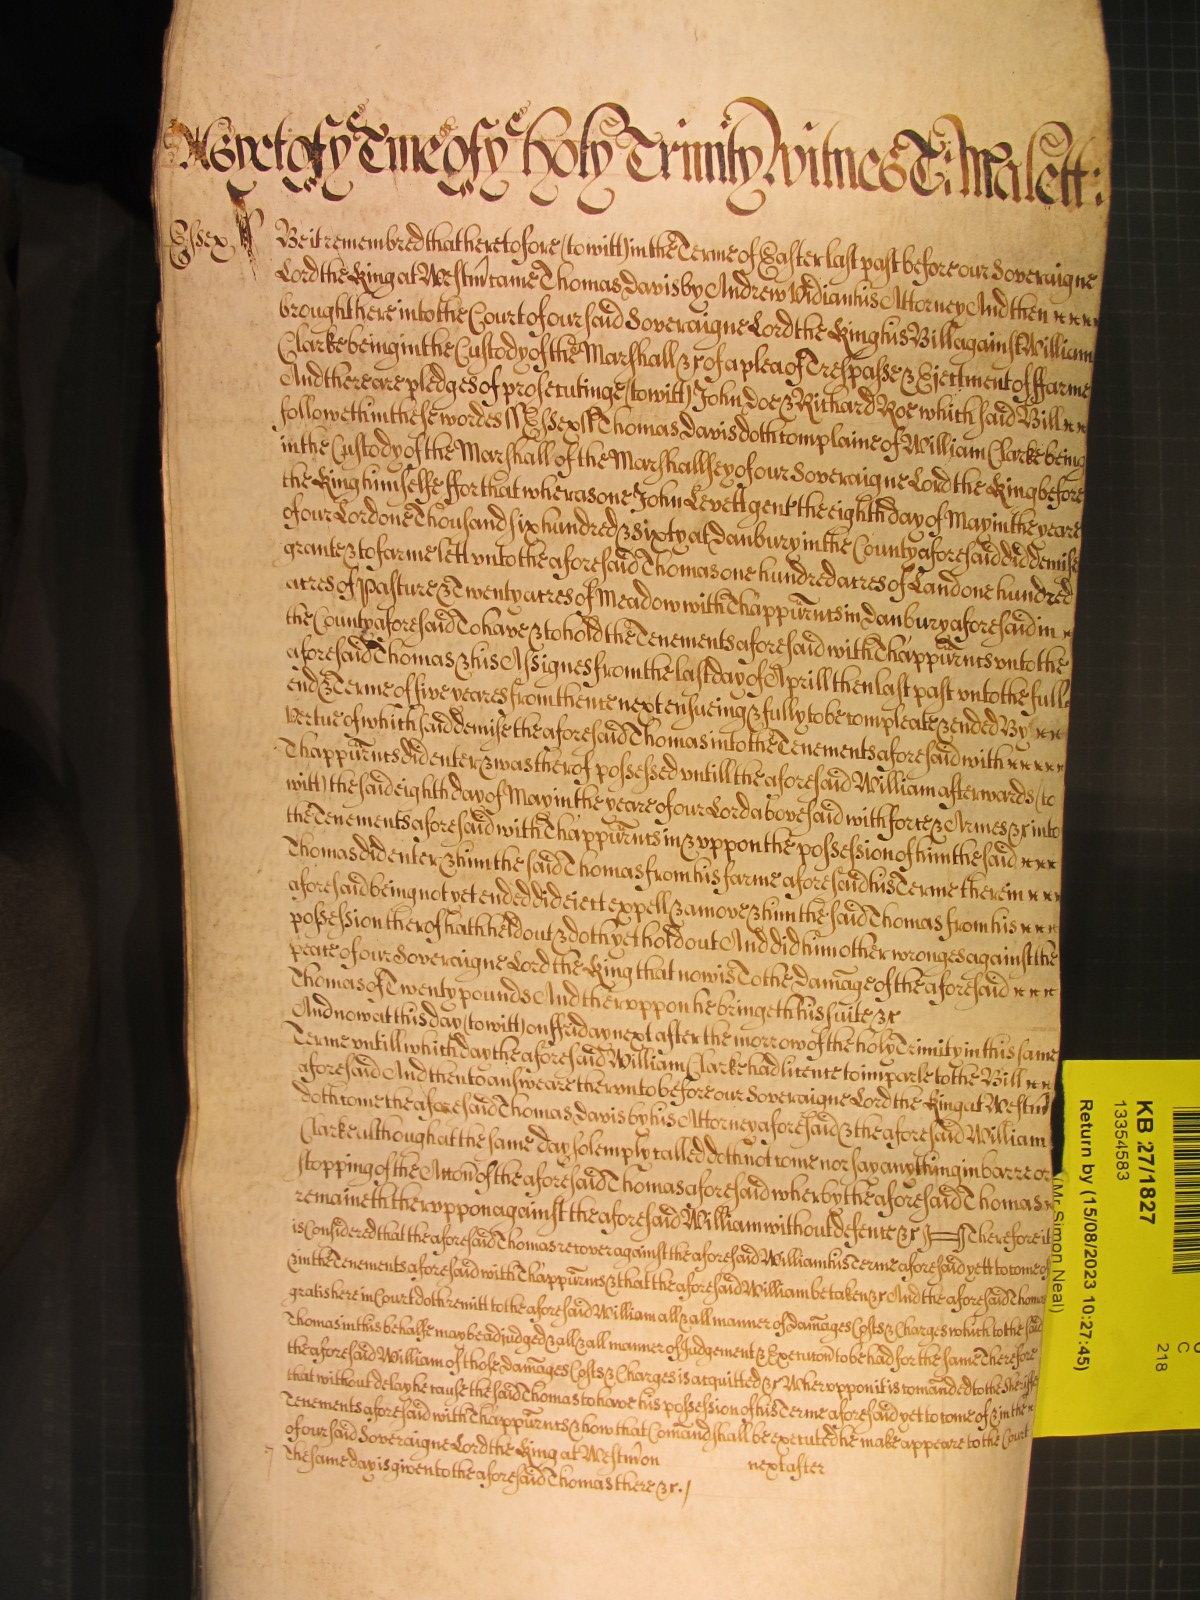 As yet of ye Tme of ye holy Trinity Witnes T: Malett:
Essex ss Be it remembred that heretofore (to witt) in the Terme of Easter last past before our Soveraigne
Lord the King at Westm̃ came Thomas Davis by Andrew Vidian his Attorney And then
brought here into the Court of our said Soveraigne Lord the King his Bill against William
Clarke being in the Custody of the Marshall &c of a plea of Trespasse & Ejectment of ffarme
And there are pledges of prosecutinge (to witt) John Doe & Richard Roe which said Bill
followeth in these wordes ss Essex ss Thomas Davis doth complaine of William Clarke being
in the Custody of the Marshall of the Marshallsey of our Soveraigne Lord the King before
the King himselfe ffor that wheras one John Levett gent the eighth day of May in the yeare
of our Lord one Thousand six hundred & sixty at Danbury in the County aforesaid did demise
grante & to farme lett unto the aforesaid Thomas one hundred acres of Land one hundred
acres of Pasture & Twenty acres of Meadow with Thappũrntis in Danbury aforesaid in
the County aforesaid To have & to hold the Tenements aforesaid with Thappũrntis unto the
aforesaid Thomas & his Assignes from the last day of Aprill then last past unto the full
end & Terme of five yeares from thence next ensueing & fully to be compleate & ended By
vertue of which said demise the aforesaid Thomas into the Tenements aforesaid with
Thappũrntis did enter & was therof possessed untill the aforesaid William afterwards (to
witt) the said eighth day of May in the yeare of our Lord abovesaid with force & Armes &c into
the Tenements aforesaid with Thappũrntis in & uppon the possession of him the said
Thomas did enter & him the said Thomas from his farme aforesaid his Terme therein
aforesaid being not yet ended did eiect expell & amove & him the said Thomas from his
possession therof hath held out & doth yet hold out And did him other wronges against the
peace of our Soveraigne Lord the King that now is To the damage of the aforesaid
Thomas of Twenty pounds And theruppon he bringeth his suite &c
And now at this day (to witt) on ffriday next after the morrow of the holy Trinity in this same
Terme untill which day the aforesaid William Clarke had licence to imparle to the Bill
aforesaid And then to answeare therunto before our Soveraigne Lord the King at Westm̃
doth come the aforesaid Thomas Davis by his Attorney aforesaid & the aforesaid William
Clarke although at the same day solemply called doth not come nor say any thing in barre or
stopping of the Accoñ of the aforesaid Thomas aforesaid wherby the aforesaid Thomas
remaineth theruppon against the aforesaid William without defence &c Therefore it
is Considered that the aforesaid Thomas recover against the aforesaid William his Terme aforesaid yett to come of
& in the Tenements aforesaid with Thappũrntis & that the aforesaid William be taken &c And the aforesaid Thomas
gratis here in Court doth remitt to the aforesaid William all & all manner of damages Costs & Charges which to the said
Thomas in this behalfe may be adjudged & all & all manner of Judgement & Execucoñ to be had for the same Therefore
the aforesaid William of those damages Costs & Charges is acquitted &c Wheruppon it is com̃anded to the Sheriffe
that without delay he cause the said Thomas to have his possession of his Terme aforesaid yet to come of & in the
Tenements aforesaid with Thappũrntis & how that Com̃and shall be executed he make appeare to the Court
of our said Soveraigne Lord the King at Westm̃ on next after
The same day is given to the aforesaid Thomas there &c.
KB 27/1827
13354583
Return by (15/08/2023 10:27:45)
(Mr Simon Neal)
C
218